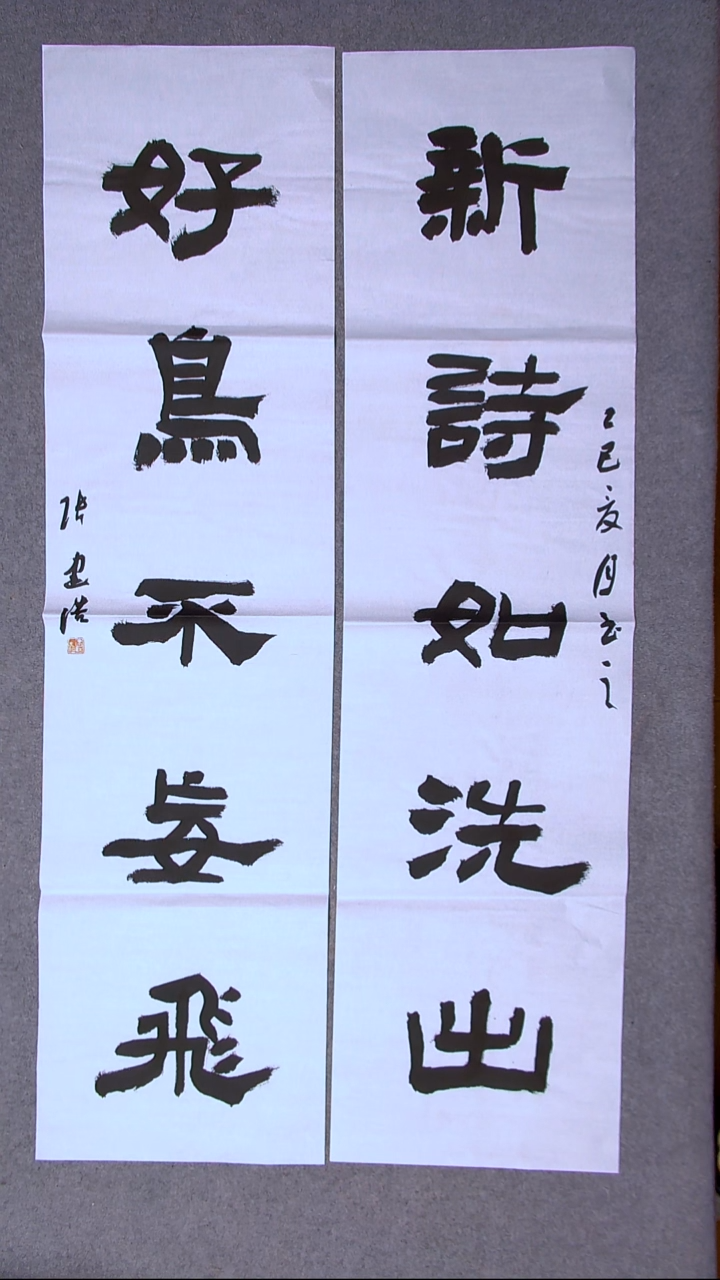 乙巳夏月书之
新詩如洗出
好鳥不妄飛
张建浩